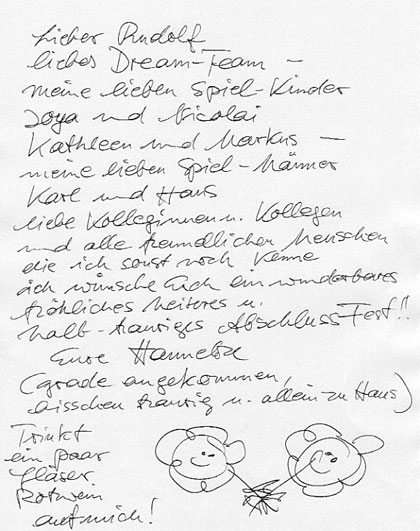 Lieber Rudolf
liebes Dream-Team –
meine lieben Spiel-Kinder
Joya und Nicolai
Kathleen und Markus –
meine lieben Spiel-Männer
Karl und Hans
liebe Kolleginnen u. Kollegen
und alle freundlichen Menschen
die ich sonst noch kenne
ich wünsche Euch ein wunderbares
fröhliches heiteres u.
halb-trauriges Abschluss-Fest!!
Eure Hannelore
(grade angekommen,
bisschen traurig u. allein zu Haus)
Trinkt
ein paar
Gläser
Rotwein
auf mich!